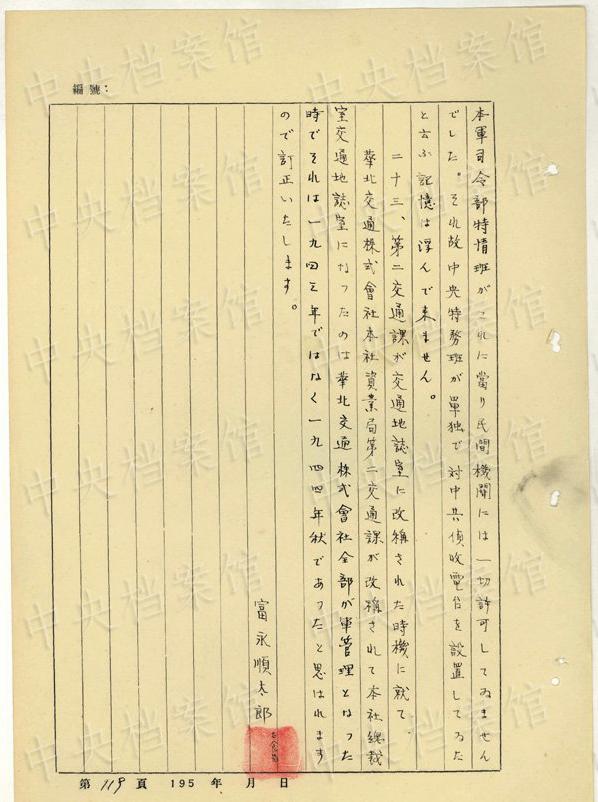 編號：
本軍司令部特情班がこれに當り民間機関には一切許可してゐません
でした。それ故中央特務班が單独で対中共偵收電台を設置してゐた
と云ふ記憶は浮んで来ません。
二十三、第二交通課が交通地誌室に改稱された時機に就て、
華北交通株式會社本社資業局第二交通課が改稱されて本社総裁
室交通地誌室になったのは華北交通株式會社全部が軍管理となった
時でそれは一九四三年ではなく一九四四年秋であったと思はれます
ので訂正いたします。
富永順太郎
第119頁 195 年 月 日
中央档案馆